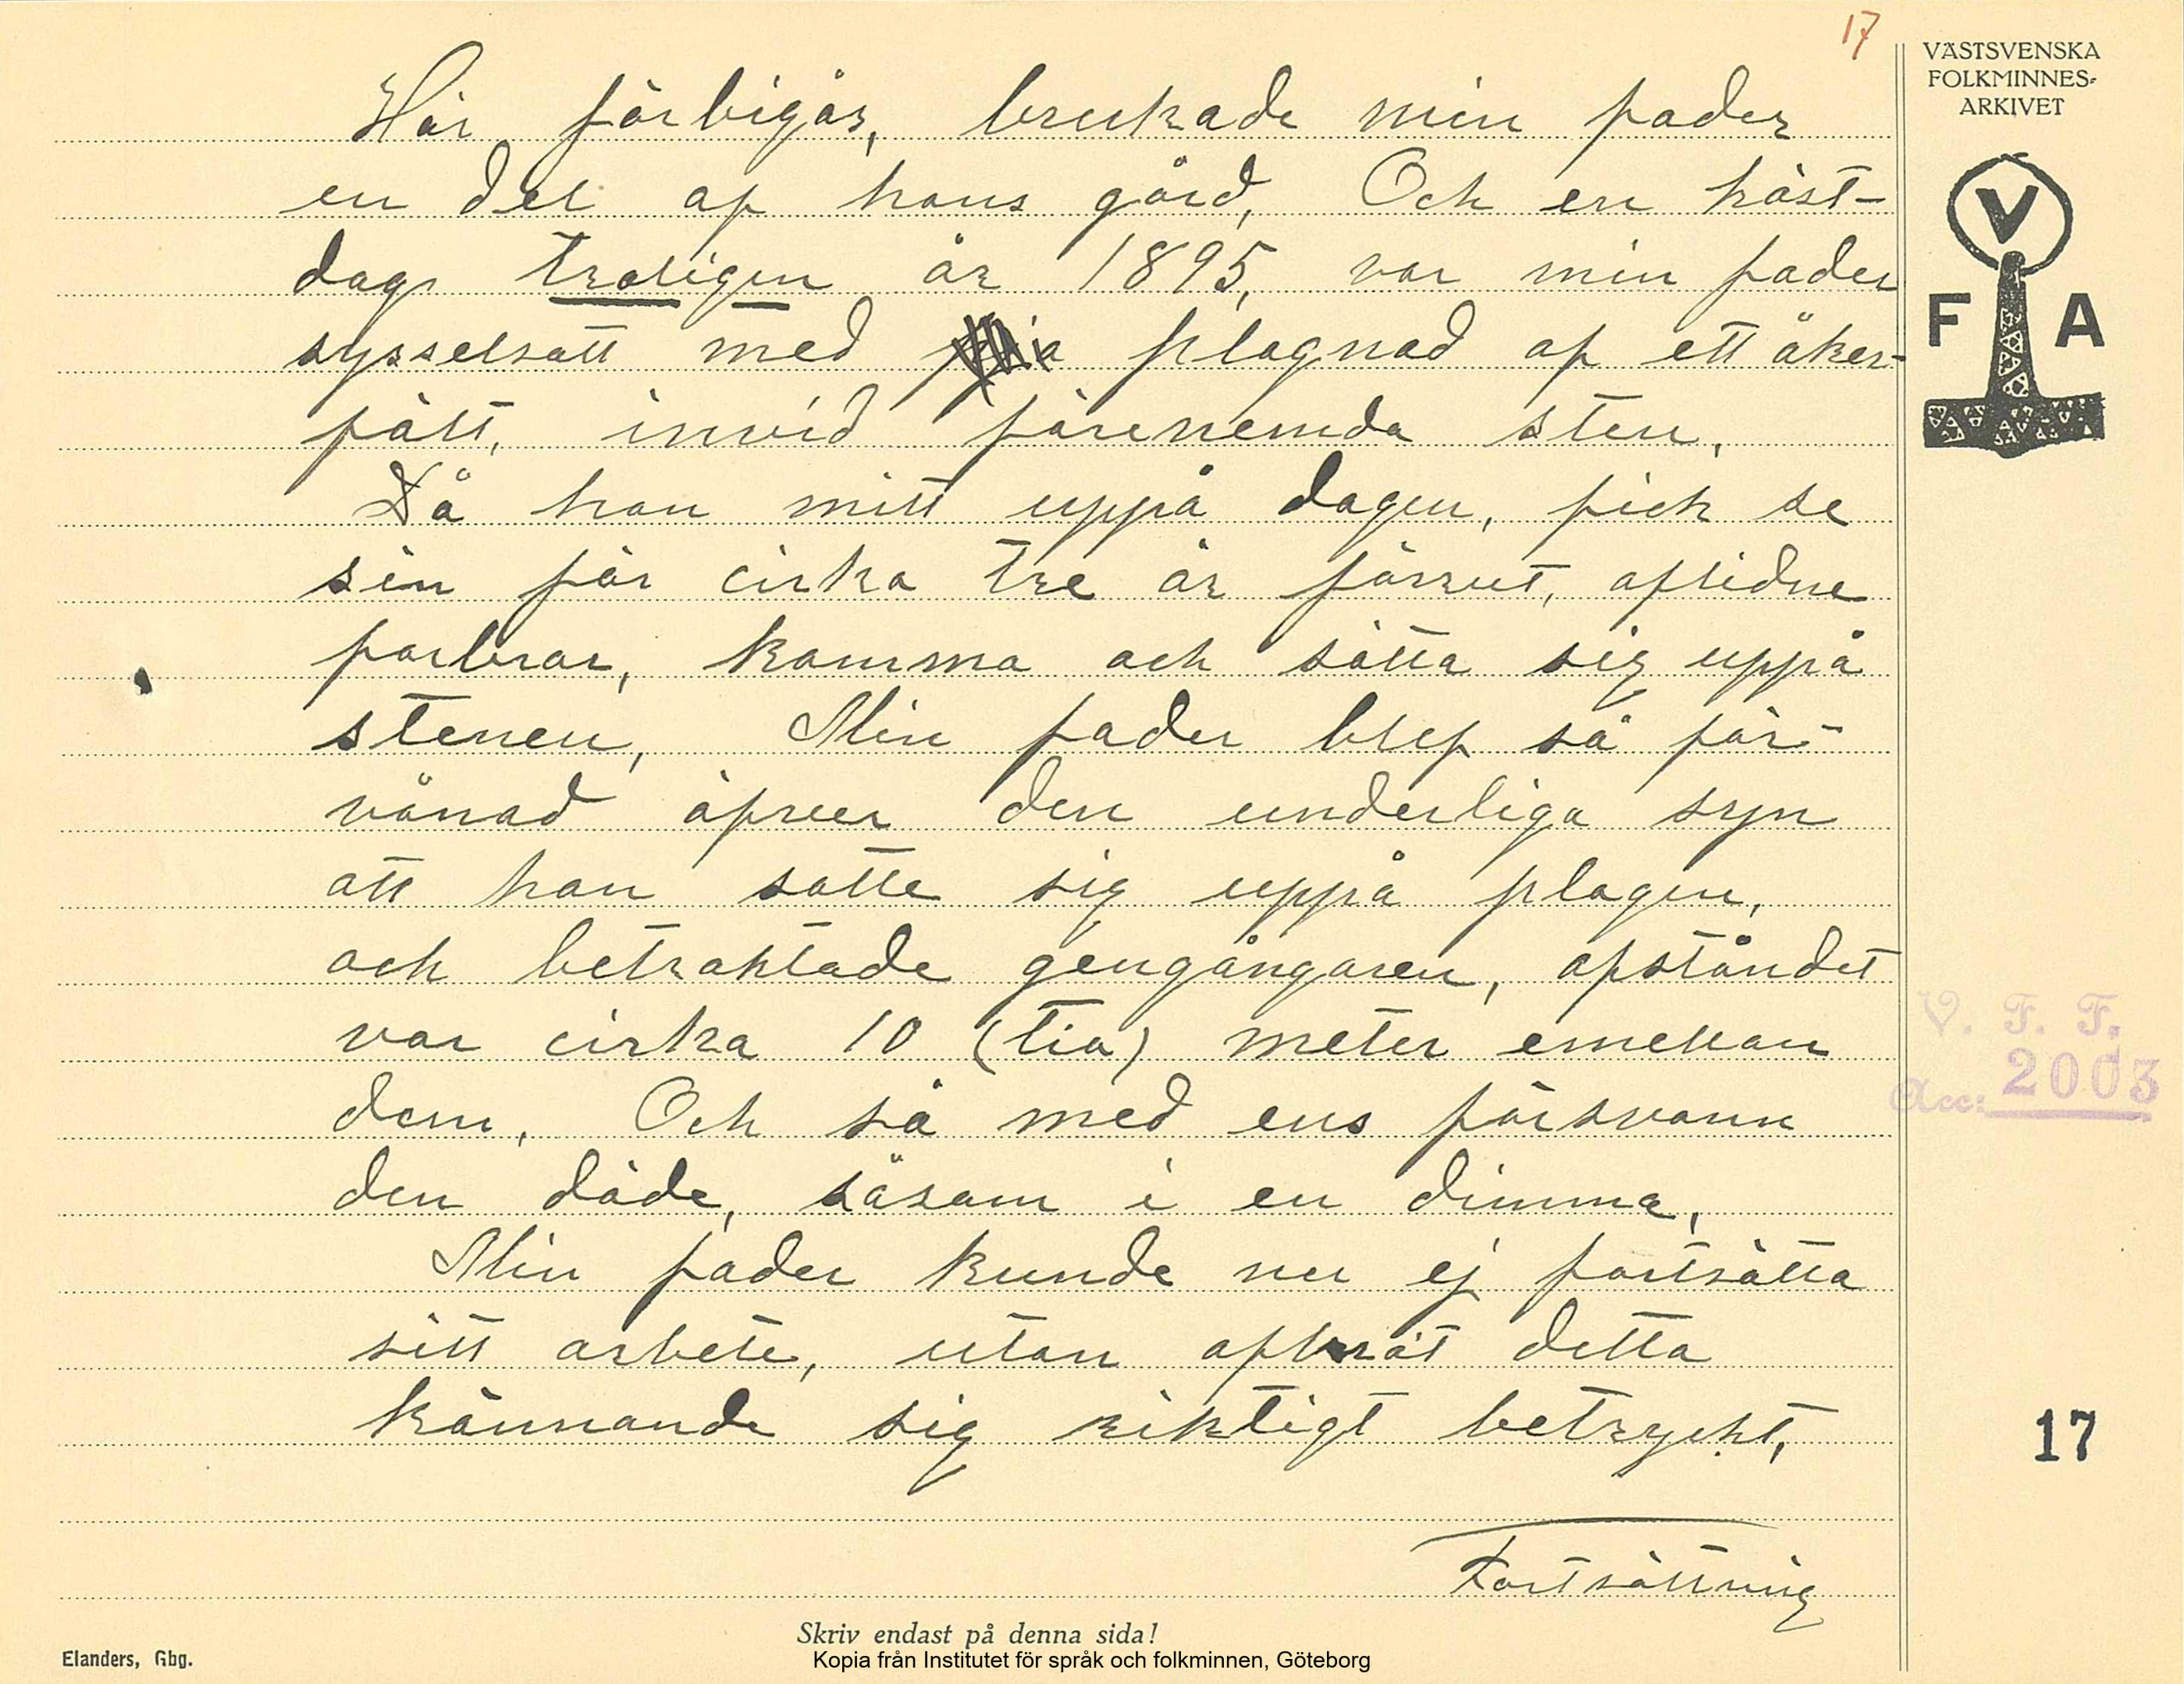 17
VÄSTSVENSKA
FOLKMINNES-
ARKIVET
V
F A
Här förbigår, brukade min fader
en del af hans gård, Och en höst-
dag, troligen år 1895, var min fader
sysselsatt med plognad af ett åker-
fält, invid förenemda sten,
Då han mitt uppå dagen, fick se
sin för cirka tre år förrut, aflidne
farbror, komma och sätta sig uppå
stenen, Min fader blef så för-
vånad öfver den underliga syn
att han satte sig uppå plogen,
och betraktade gengångaren, afståndet
var cirka 10 (tio) meter emellan
dem, Och så med ens försvann
den döde, såsom i en dimma,
Min fader kunde nu ej fortsätta
sitt arbete, utan afbröt detta
kännande sig riktigt betryckt,
Fortsättning
V. F. F.
Acc: 2003
17
Skriv endast på denna sida!
Elanders, Gbg.
Kopia från Institutet för språk och folkminnen, Göteborg